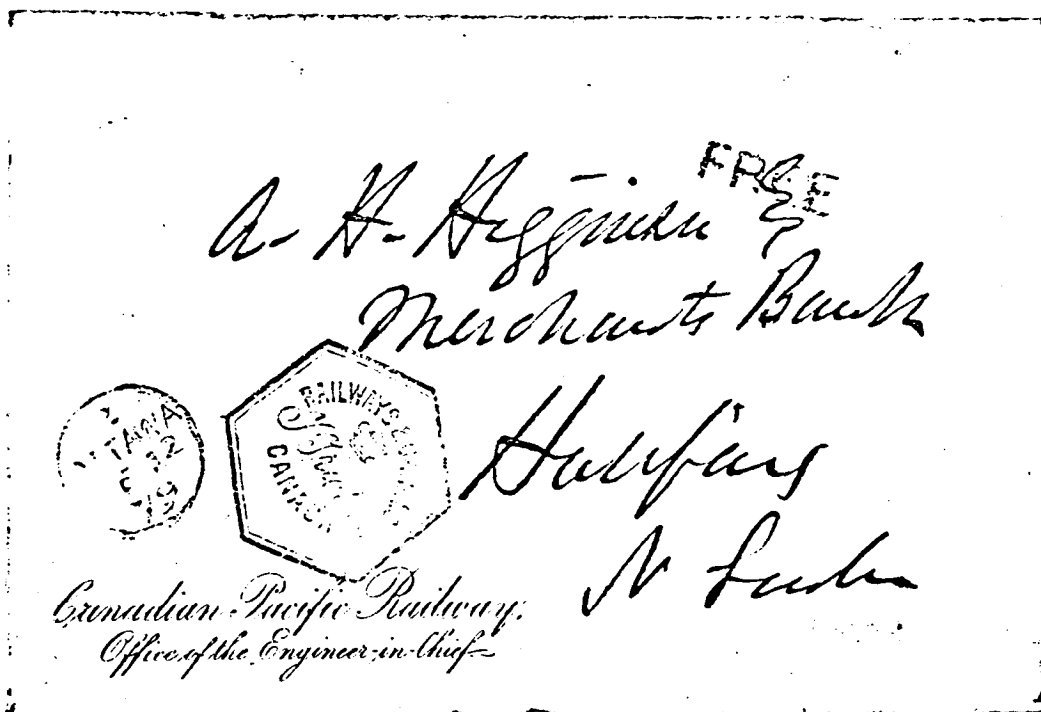 FREE
A. H. Higginson
Merchants Bank
Halifax
N Scotia
OTTAWA
RAILWAYS &
CANADA
Canadian Pacific Railway,
Office of the Engineer-in-Chief